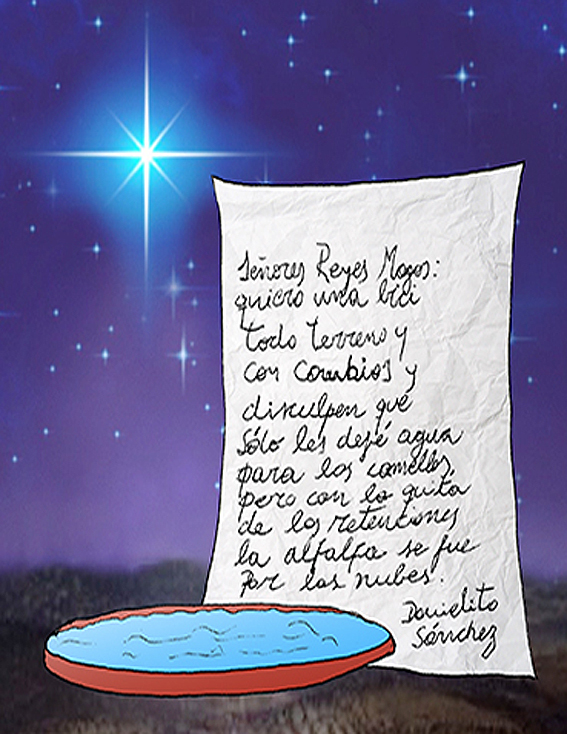 Señores Reyes Magos:
quiero una bici
todo terreno y
con cambios y
disculpen que
sólo les dejé agua
para los camellos,
pero con la quita
de las retenciones
la alfalfa se fue
por las nubes.
Danielito
Sánchez